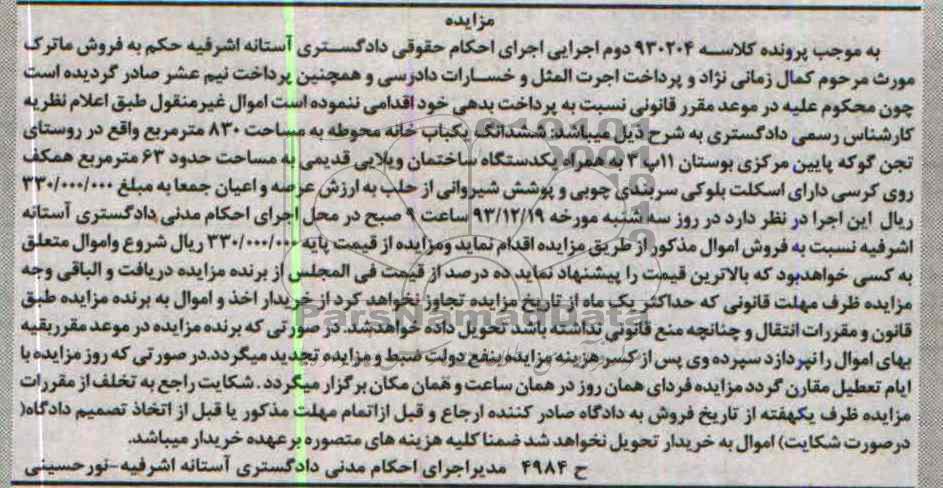 مزایده
به موجب پرونده کلاسه ۹۳۰۲۰۴ دوم اجرایی اجرای احکام حقوقی دادگستری آستانه اشرفیه حکم به فروش ماترک
مورث مرحوم کمال زمانی نژاد و پرداخت اجرت المثل و خسارات دادرسی و همچنین پرداخت نیم عشر صادر گردیده است
چون محکوم علیه در موعد مقرر قانونی نسبت به پرداخت بدهی خود اقدامی ننموده است اموال غیرمنقول طبق اعلام نظریه
کارشناس رسمی دادگستری به شرح ذیل میباشد: ششدانگ یکباب خانه محوطه به مساحت ۸۳۰ مترمربع واقع در روستای
تجن گوکه پایین مرکزی بوستان ۱۱پ ۳ به همراه یکدستگاه ساختمان ویلایی قدیمی به مساحت حدود ۶۳ مترمربع همکف
روی کرسی دارای اسکلت بلوکی سربندی چوبی و پوشش شیروانی از حلب به ارزش عرصه و اعیان جمعا به مبلغ ۳۳۰/۰۰۰/۰۰۰
ریال این اجرا در نظر دارد در روز سه شنبه مورخه ۹۳/۱۲/۱۹ ساعت ۹ صبح در محل اجرای احکام مدنی دادگستری آستانه
اشرفیه نسبت به فروش اموال مذکور از طریق مزایده اقدام نماید ومزایده از قیمت پایه ۳۳۰/۰۰۰/۰۰۰ ریال شروع واموال متعلق
به کسی خواهدبود که بالاترین قیمت را پیشنهاد نماید ده درصد از قیمت فی المجلس از برنده مزایده دریافت و الباقی وجه
مزایده ظرف مهلت قانونی که حداکثر یک ماه از تاریخ مزایده تجاوز نخواهد کرد از خریدار اخذ و اموال به برنده مزایده طبق
قانون و مقررات انتقال و چنانچه منع قانونی نداشته باشد تحویل داده خواهدشد. در صورتی که برنده مزایده در موعد مقرربقیه
بهای اموال را نپردازد سپرده وی پس از کسر هزینه مزایده بنفع دولت ضبط و مزایده تجدید میگردد.در صورتی که روز مزایده با
ایام تعطیل مقارن گردد مزایده فردای همان روز در همان ساعت و همان مکان برگزار میگردد. شکایت راجع به تخلف از مقررات
مزایده ظرف یکهفته از تاریخ فروش به دادگاه صادر کننده ارجاع و قبل ازاتمام مهلت مذکور یا قبل از اتخاذ تصمیم دادگاه(
درصورت شکایت) اموال به خریدار تحویل نخواهد شد ضمنا کلیه هزینه های متصوره برعهده خریدار میباشد.
ح ۴۹۸۴ مدیراجرای احکام مدنی دادگستری آستانه اشرفیه-نورحسینی
ParsNamadData